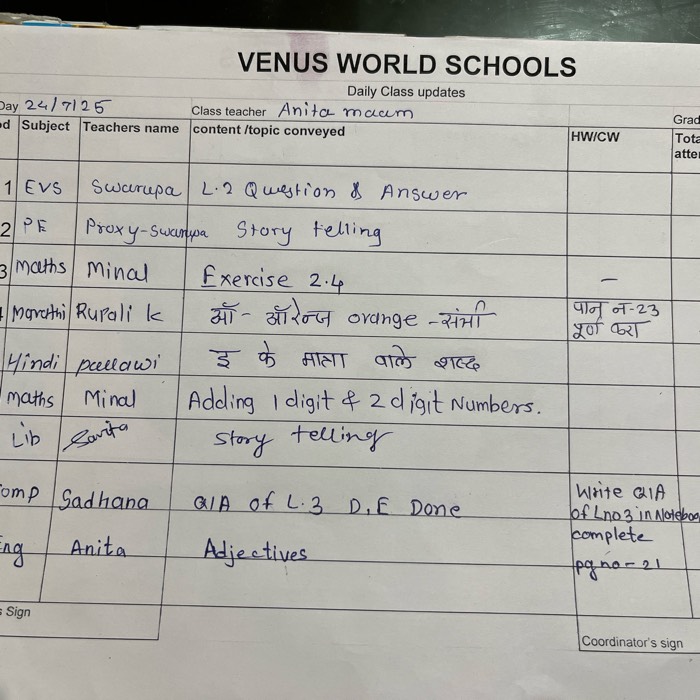 VENUS WORLD SCHOOLS
Daily Class updates
Day 24/7/25 Class teacher Anita maam Grad
d Subject Teachers name content /topic conveyed HW/CW Tota
atte
1 EVS Swarupa L.2 Question & Answer
2 PE Proxy-Swarupa Story telling
3 maths Minal Exercise 2.4 –
Marathi Rupali k ऑ - ऑरेन्ज orange - संत्री पान न-23
पूर्ण करा
Hindi pallawi इ के मात्रा वाले शब्द
maths Minal Adding 1 digit & 2 digit Numbers.
Lib Savita story telling
omp Sadhana Q/A of L.3 D,E Done Write Q/A
of Lno3 in Noteboo
complete
Eng Anita Adjectives pg no - 21
s Sign
Coordinator's sign